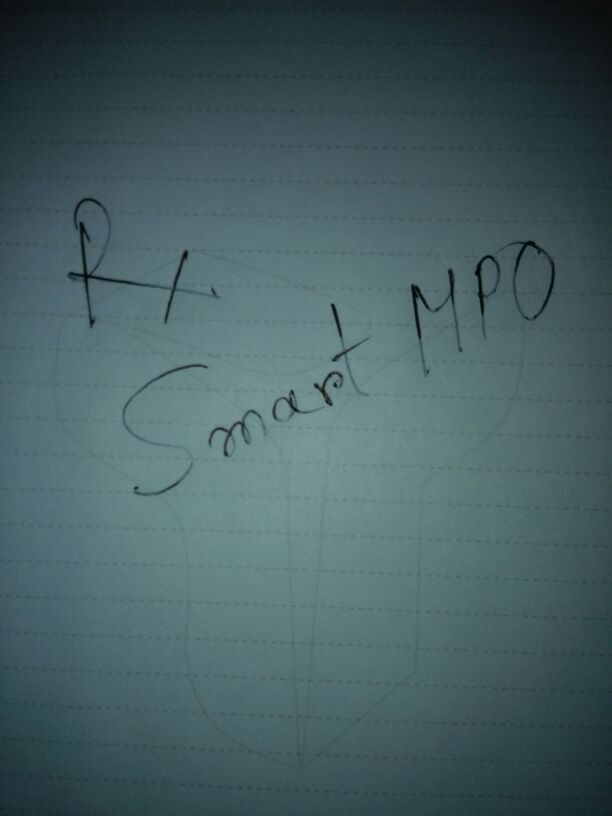 Rx.
Smart MPO